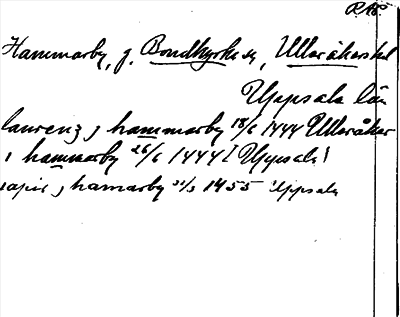 RAP
Hammarby, g. Bondkyrko sn, Ulleråkers hd
Uppsala län
laurenz j hammarby 18/6 1444 Ulleråker
i hammarby 26/6 1444 (Uppsala)
j hamarby 1455 Uppsala